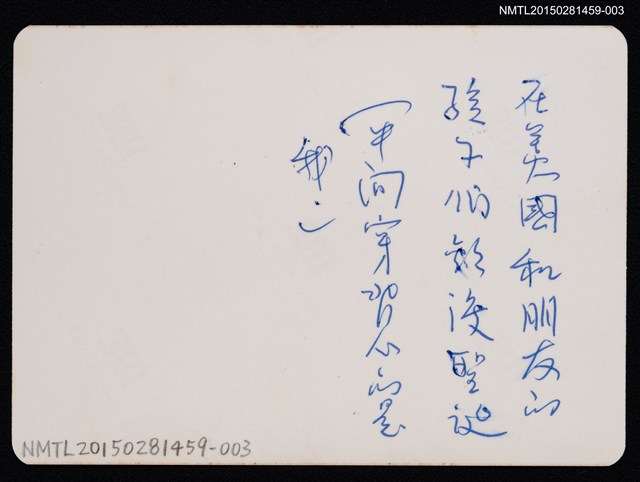 NMTL20150281459-003
在美國和朋友的
孩子們歡渡聖誕
（中間穿背心的是
我）
NMTL20150281459-003